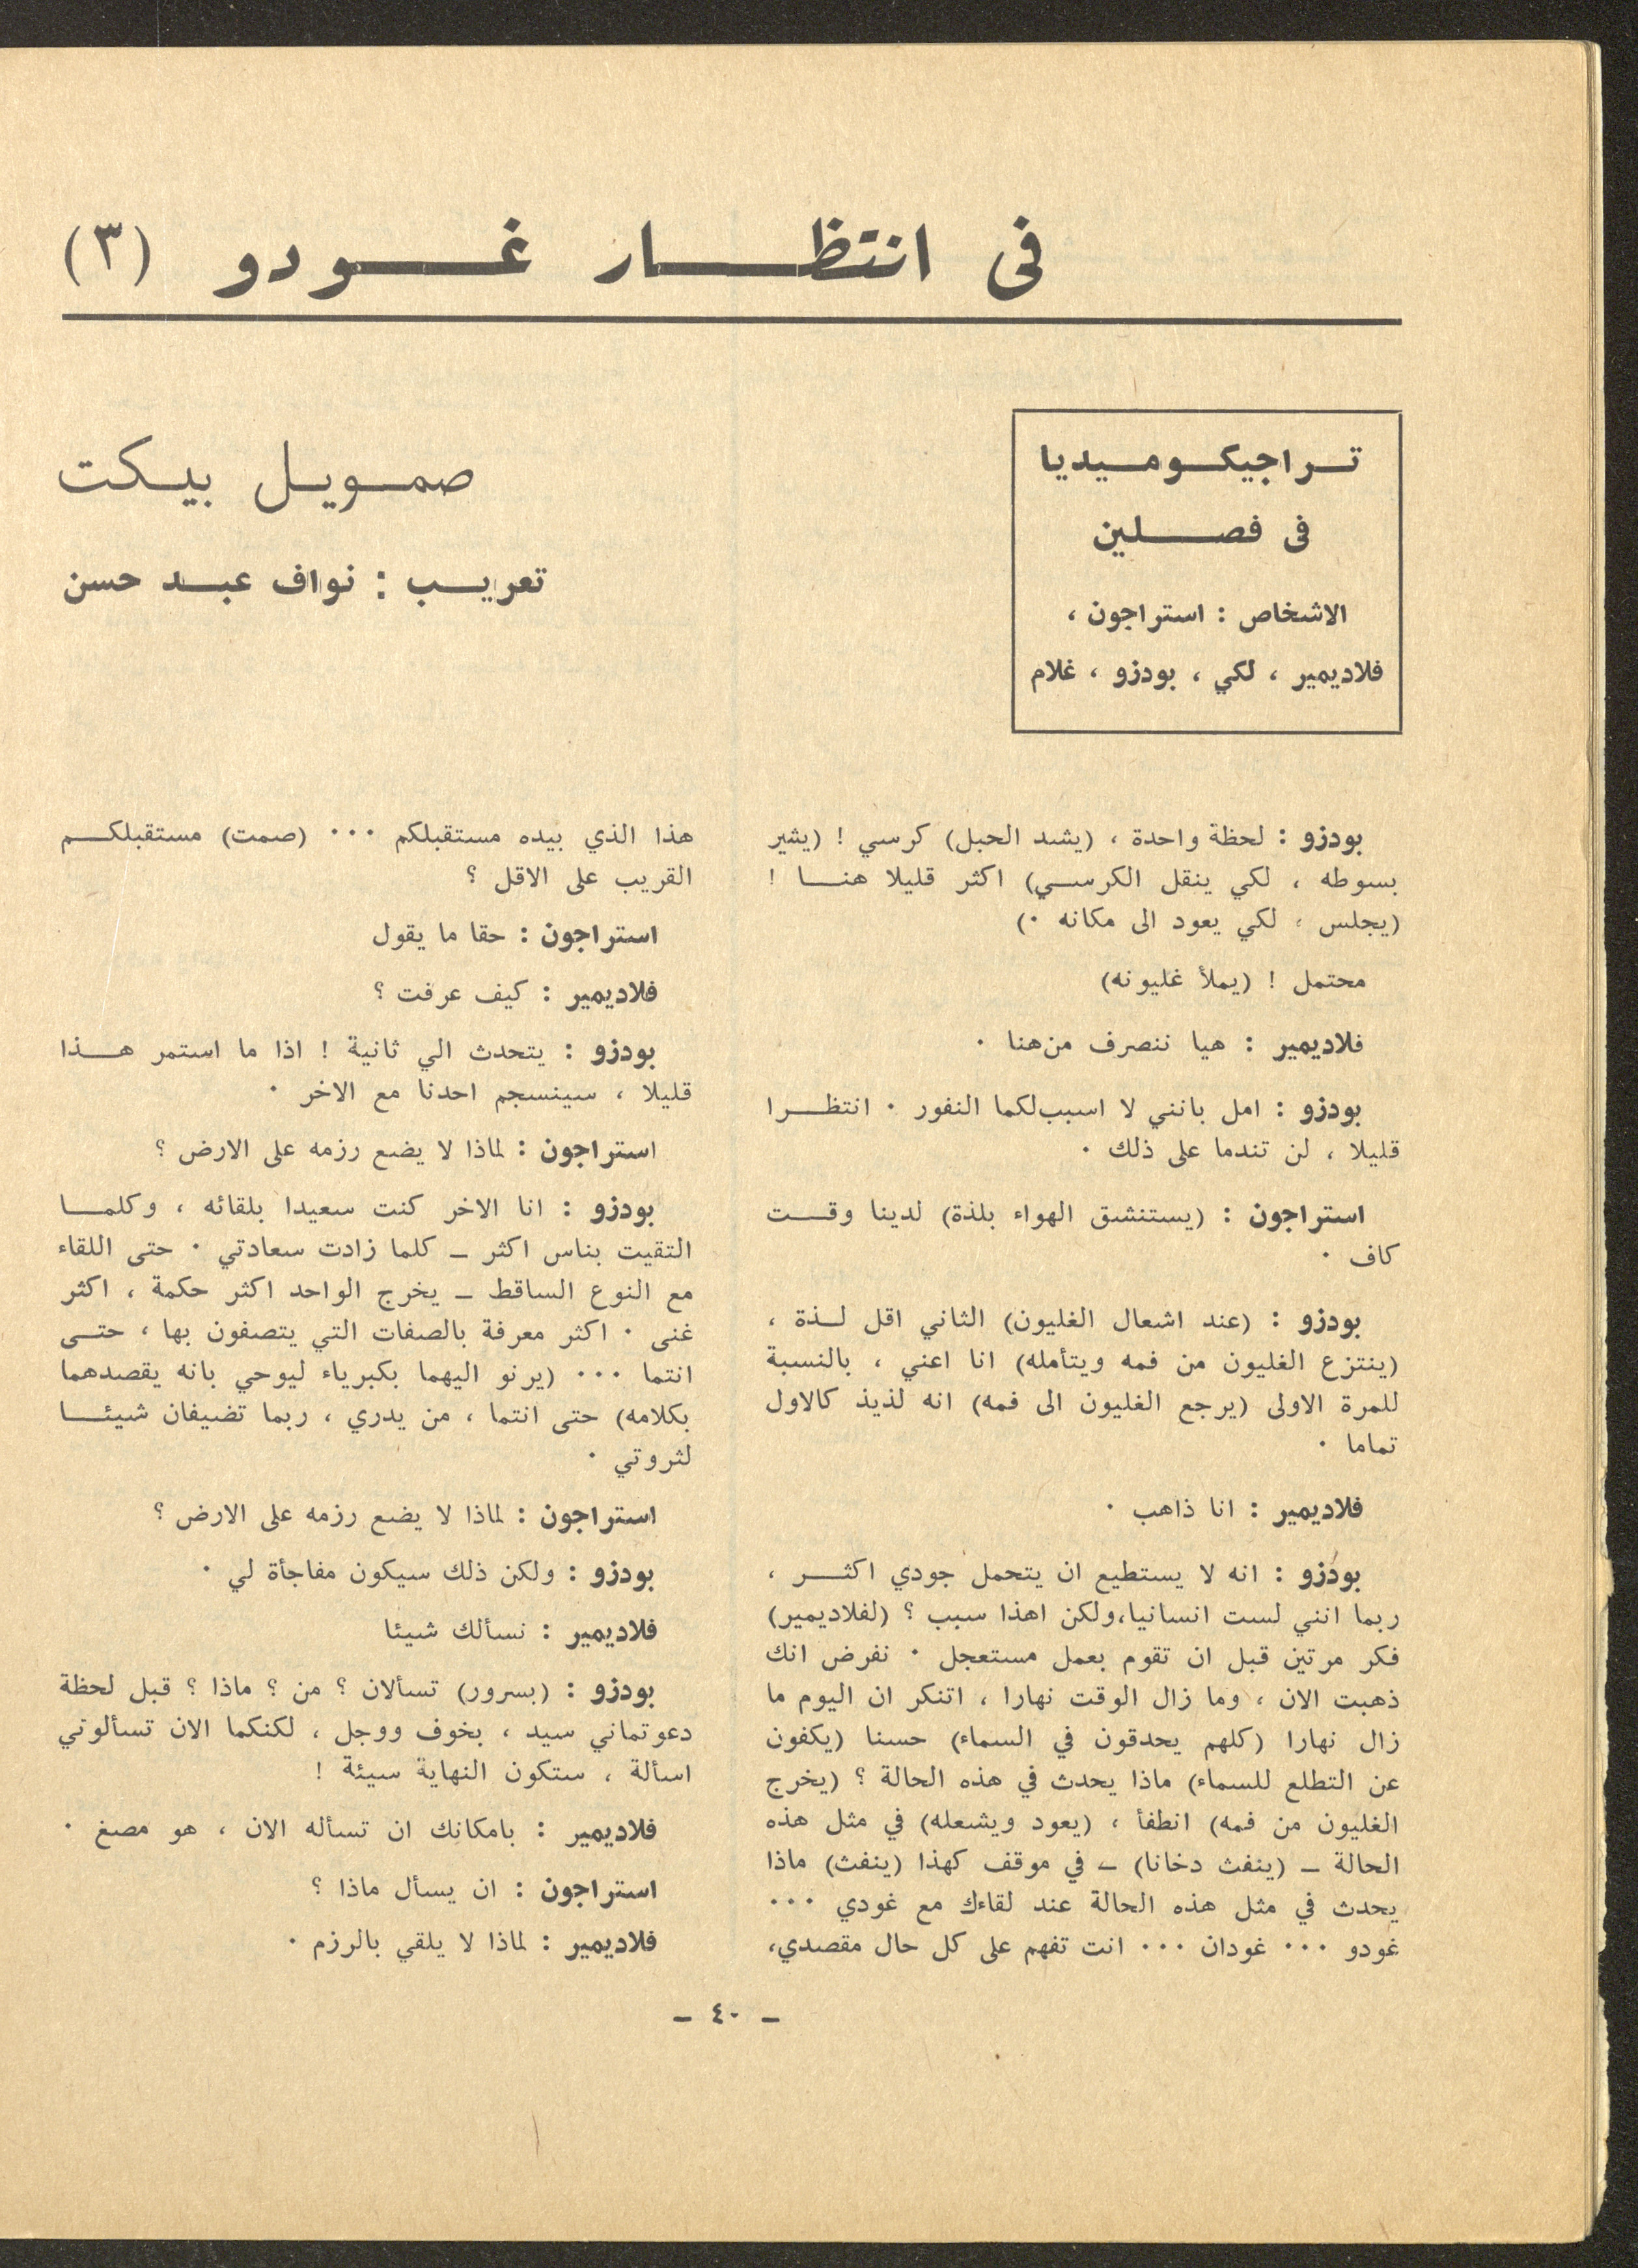 فى انتظار غودو (٣)
تراجيكوميديا
فى فصلين
الاشخاص : استراجون ،
فلاديمير ، لكي ، بودزو ، غلام
صمويل بيكت
تعريب : نواف عبد حسن
بودزو : لحظة واحدة ، (يشد الحبل) كرسي ! (يشير
بسوطه ، لكي ينقل الكرسي) اكثر قليلا هنا !
(يجلس ، لكي يعود الى مكانه ٠)
محتمل ! (يملأ غليونه)
فلاديمير : هيا ننصرف من هنا ٠
بودزو : امل بانني لا اسبب لكما النفور ٠ انتظرا
قليلا ، لن تندما على ذلك ٠
استراجون : (يستنشق الهواء بلذة) لدينا وقت
كاف ٠
بودزو : (عند اشعال الغليون) الثاني اقل لذة ،
(ينتزع الغليون من فمه ويتأمله) انا اعني ، بالنسبة
للمرة الاولى (يرجع الغليون الى فمه) انه لذيذ كالاول
تماما ٠
فلاديمير : انا ذاهب ٠
بودزو : انه لا يستطيع ان يتحمل جودي اكثر ،
ربما انني لست انسانيا،ولكن اهذا سبب ؟ (لفلاديمير)
فكر مرتين قبل ان تقوم بعمل مستعجل ٠ نفرض انك
ذهبت الان ، وما زال الوقت نهارا ، اتنكر ان اليوم ما
زال نهارا (كلهم يحدقون في السماء) حسنا (يكفون
عن التطلع للسماء) ماذا يحدث في هذه الحالة ؟ (يخرج
الغليون من فمه) انطفأ ، (يعود ويشعله) في مثل هذه
الحالة ـ (ينفث دخانا) ـ في موقف كهذا (ينفث) ماذا
يحدث في مثل هذه الحالة عند لقاءك مع غودي ٠٠٠
غودو ٠٠٠ غودان ٠٠٠ انت تفهم على كل حال مقصدي،
هذا الذي بيده مستقبلكم ٠٠٠ (صمت) مستقبلكم
القريب على الاقل ؟
استراجون : حقا ما يقول
فلاديمير : كيف عرفت ؟
بودزو : يتحدث الي ثانية ! اذا ما استمر هذا
قليلا ، سينسجم احدنا مع الاخر ٠
استراجون : لماذا لا يضع رزمه على الارض ؟
بودزو : انا الاخر كنت سعيدا بلقائه ، وكلما
التقيت بناس اكثر ـ كلما زادت سعادتي ٠ حتى اللقاء
مع النوع الساقط ـ يخرج الواحد اكثر حكمة ، اكثر
غنى ٠ اكثر معرفة بالصفات التي يتصفون بها ، حتى
انتما ٠٠٠ (يرنو اليهما بكبرياء ليوحي بانه يقصدهما
بكلامه) حتى انتما ، من يدري ، ربما تضيفان شيئا
لثروتي ٠
استراجون : لماذا لا يضع رزمه على الارض ؟
بودزو : ولكن ذلك سيكون مفاجأة لي ٠
فلاديمير : نسألك شيئا
بودزو : (بسرور) تسألان ؟ من ؟ ماذا ؟ قبل لحظة
دعوتماني سيد ، بخوف ووجل ، لكنكما الان تسألوني
اسألة ، ستكون النهاية سيئة !
فلاديمير : بامكانك ان تسأله الان ، هو مصغ ٠
استراجون : ان يسأل ماذا ؟
فلاديمير : لماذا لا يلقي بالرزم ٠
ـ ٤٠ ـ